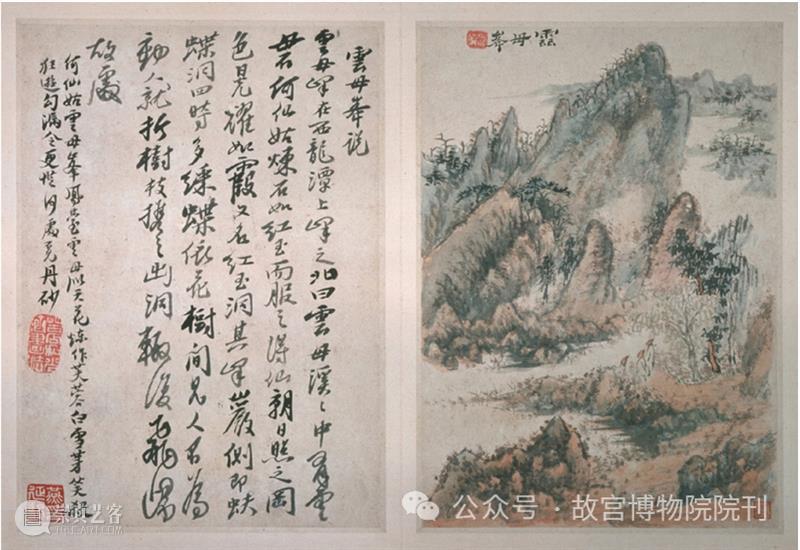 雲母峯
雲母峯説
雲母峰在西龍潭上峰之北曰雲母溪〻中有雲
母石何仙姑煉石如紅玉而服之得仙朝日照之
色晃耀如霞又名紅玉洞其峰巖側即蚨
蝶洞四時多綵蝶依花樹間見人不為
動人就折樹枝携之出洞輙復飛還
故處
何仙姑雲母峯鳳臺雲母似天花煉作芙蓉白雪芽笑殺
狂遊勾漏令更從何處覓丹砂
崇真艺客
公众号·故宫博物院院刊